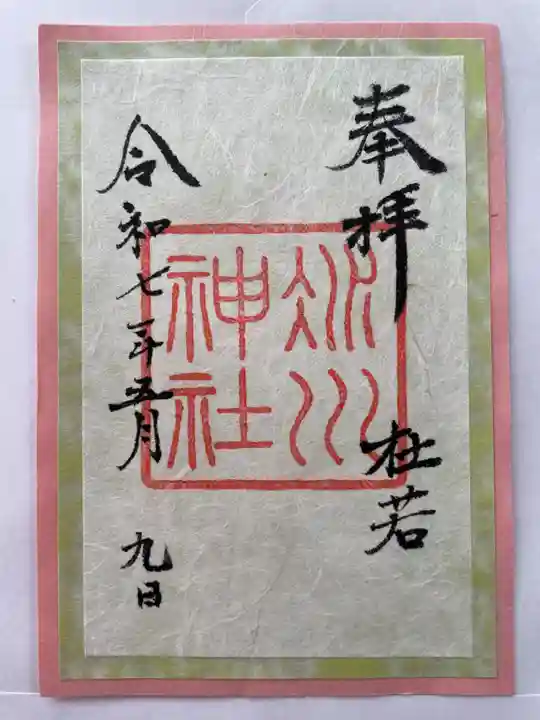 奉拝 杜若
冰川
神社
令和七年五月九日